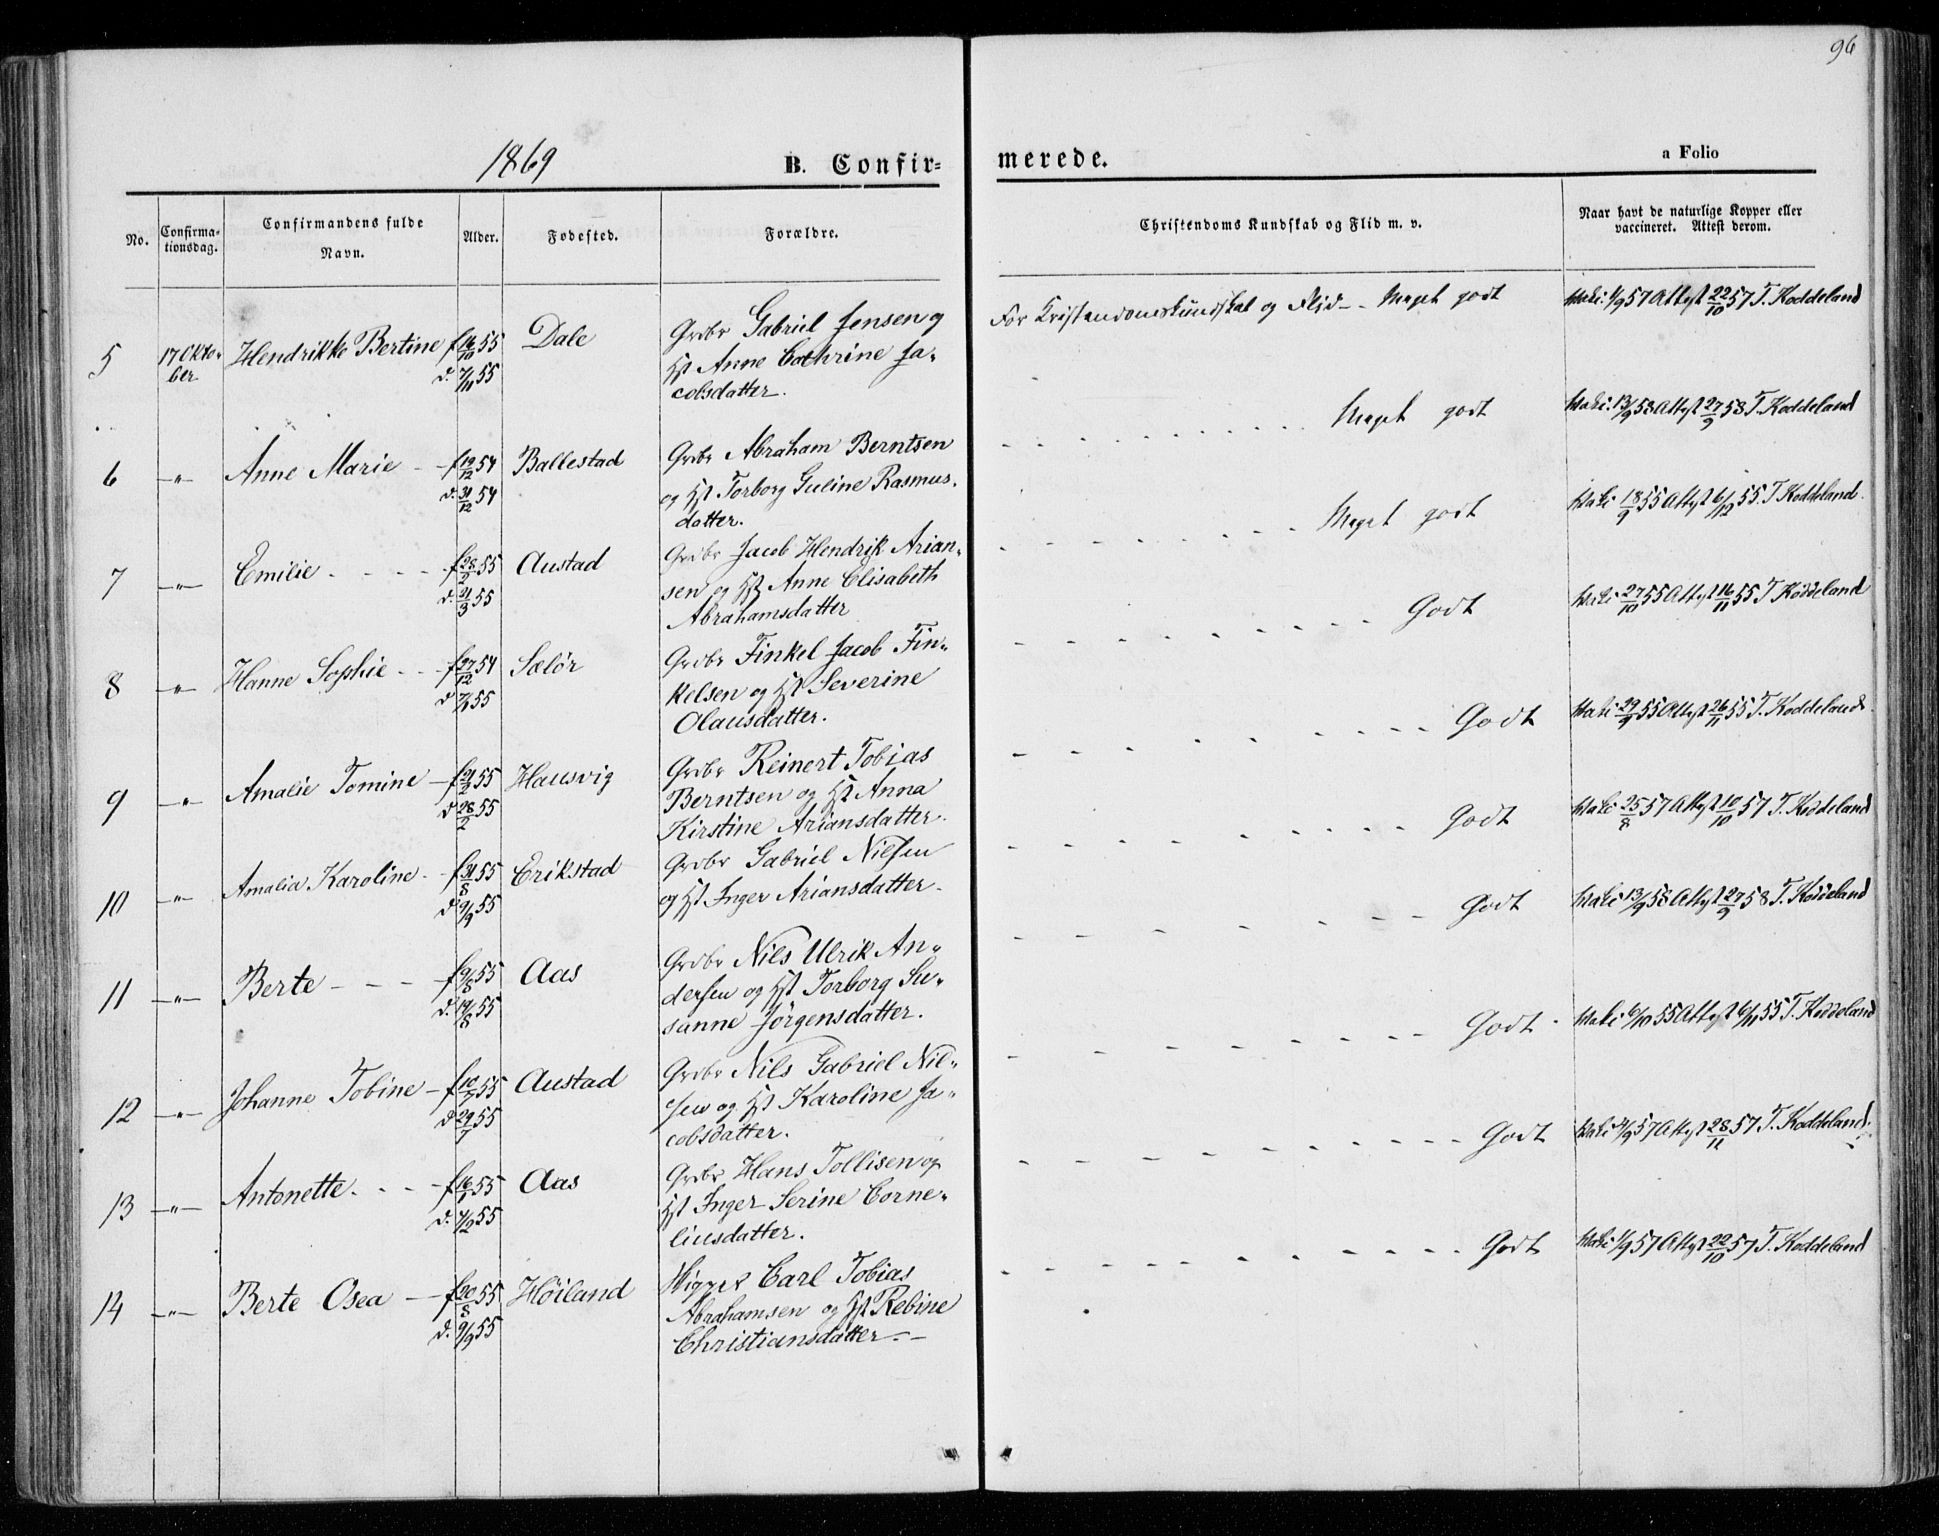 96
1869
B. Confir=
merede.
a Folio
No.
Confirma-
tionsdag.
Confirmandens fulde
Navn.
Alder.
Fødested.
Forældre.
Christendoms Kundskab og Flid m. v.
Naar havt de naturlige Kopper eller
vaccineret. Attest derom.
5 17 Okto-
ber
Hendrikke Bertine f 16/10 55
d. 7/11 55
Dale
Grdbr Gabriel Jensen og
Hst Anne Cathrine Ja-
cobsdatter.
For Kristendomskundskab og Flid - - Meget godt
1/9 57 Attest 22/10 57 T. Koddeland
6 -"- Anne Marie - f 19/12 54
d. 31/12 54
Ballestad
Grdbr Abraham Berntsen
og Hst Torborg Guline Rasmus-
datter.
Meget godt
13/9 58 Attest 27/9 58 T. Koddeland
7 -"- Emilie - - - f 28/2 55
d. 31/3 55
Austad
Grdbr Jacob Hendrik Arian-
sen og Hst Anne Elisabeth
Abrahamsdatter
Meget godt
18/9 55 Attest 6/12 55 T. Koddeland
8 -"- Hanne Sophie - - f 27/12 54
d 55
Selör
Grdbr Finkel Jacob Fin-
kelsen og Hst Severine
Olausdatter.
Godt
27/10 55 Attest 16/11 55 T Koddeland
9 -"- Amalie Tomine - f 21/2 55
d 28/2 55
Hausvig
Grdbr Reinert Tobias
Berntsen og Hst Anna
Kirstine Ariansdatter.
Godt
29/9 55 Attest 26/11 55 T. Koddeland
10 -"- Amalia Karoline - f 31/8 55
d 9/9 55
Erikstad
Grdbr Gabriel Nilsen
og Hst Inger Ariansdatter.
Godt
25/8 57 Attest 10/10 57 T. Koddeland
11 -"- Berte - - - f 9/8 55
d. 19/8 55
Aas
Grdbr Nils Ulrik An-
dersen og Hst Torborg Su-
sanne Jörgensdatter.
Godt
13/9 58 Attest 27/9 58 T. Koddeland
12 -"- Johanne Tobine - f 10/7 55
d 29/7 55
Austad
Grdbr Nils Gabriel Nil-
sen og Hst Karoline Ja-
cobsdatter.
Godt
6/10 55 Attest 6/11 55 T. Koddeland
13 -"- Antonette - - - f 16/1 55
d. 55
Aas
Grdbr Hans Tollisen og
Hst Inger Serine Corne-
liusdatter.
Godt
57 Attest 28/11 57 T. Koddeland
14 -"- Berte Osea - - f 20/8 55
d. 9/9 55
Höiland
Carl Tobias
Abrahamsen og Hst Rebine
Christiansdatter - -
Godt
1/9 57 Attest 22/10 57 T. Koddeland